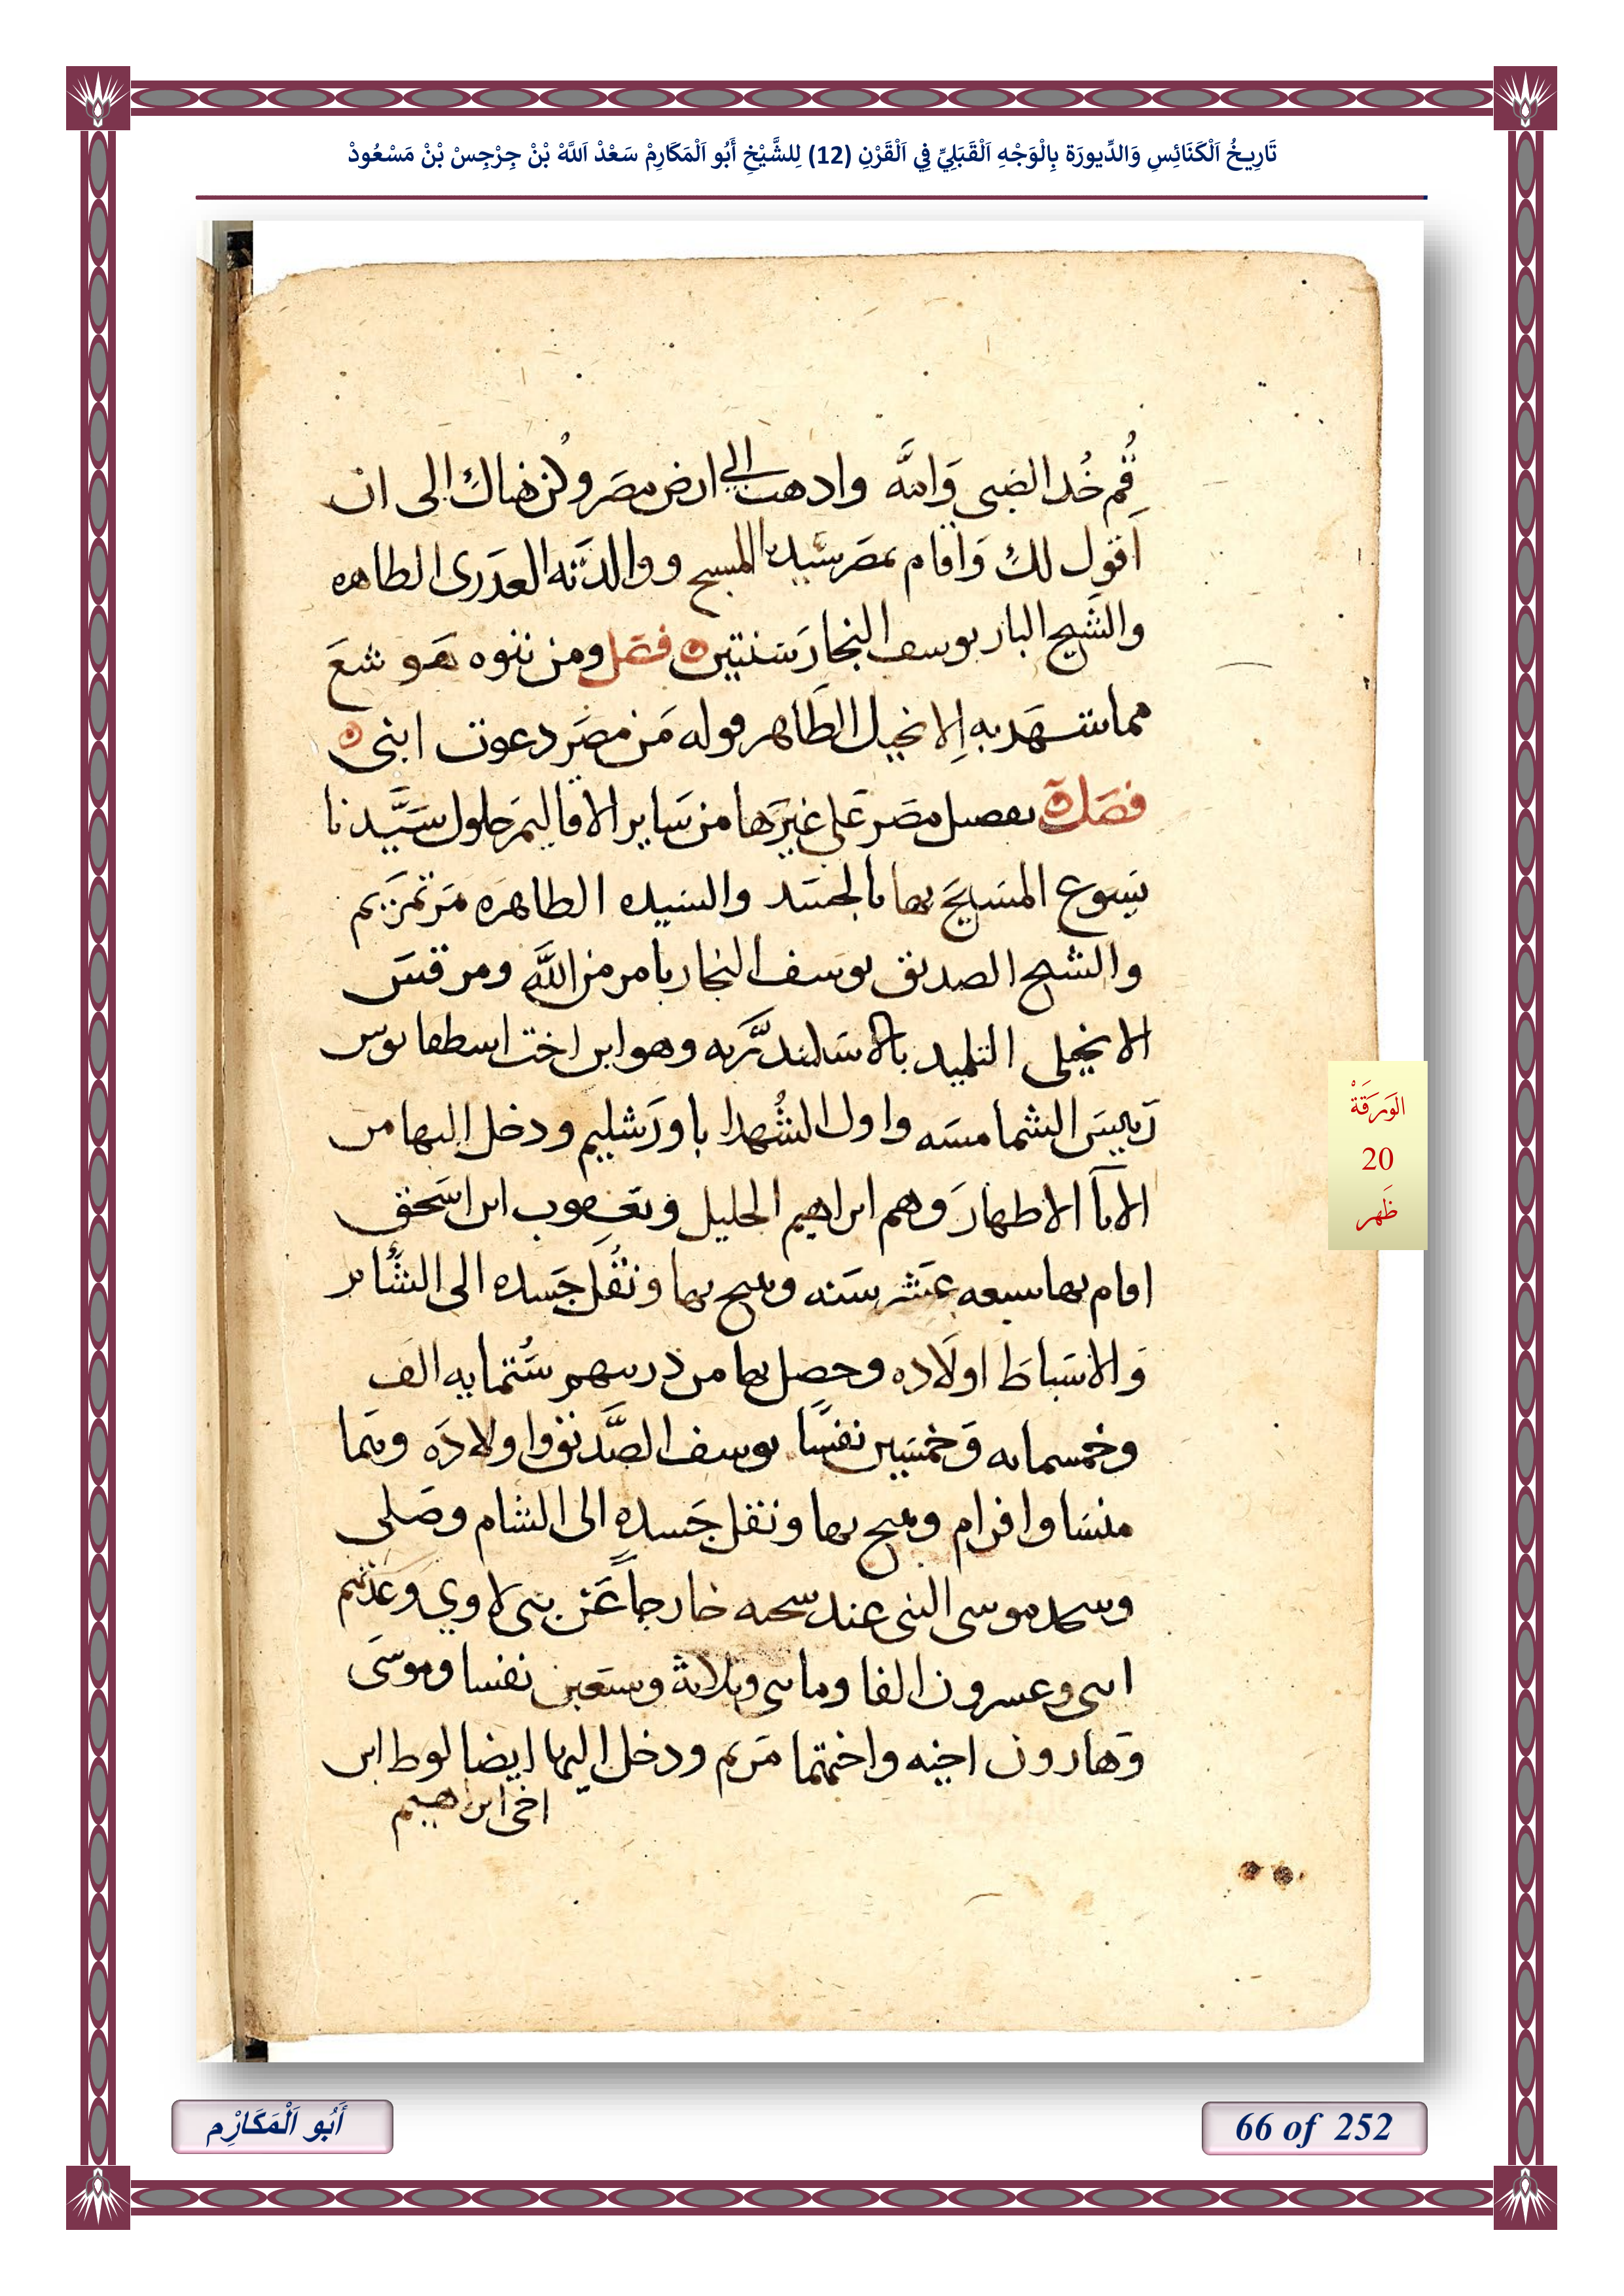 تَارِيخُ اَلْكَنَائِسِ وَالدِّيورَة بِالْوَجْهِ اَلْقَبَلِيِّ فِي اَلْقَرْنِ (12) لِلشَّيْخِ أَبُو اَلْمَكَارِمْ سَعْدْ اَللَّهْ بْنْ جِرْجِسْ بْنْ مَسْعُودْ
قُم خُد الصَبى وَامَّه وادهب الي ارض مصَر وكُن هناك الى ان
اقول لك وَاقام بمصَر سَيدنا المسيح ووالدَته العدَرى الطاهره
والشَيخ البار يوسف النجار سَنتين فصَل ومن ننوه هَو شعَ
مما شهَد به الانجيل الطَاهر قوله مَن مصَر دعوت ابنى
فصَل تفضيل مصَر عَلى غيرَها من سَاير الاقاليم حلول سَيَّدنا
يَسوع المسَيح بها بالجسَد والسَيده الطاهرَه مَرتمرَيم
والشيخ الصديق يوسَف النجار بامر من اللَّه ومرقسَ
الانجيلى التلميد بالاسَكندَّريه وهو ابن اخت اسطفانوس
رَييسَ الشمامسَه واول الشُهدا باورَشليم ودخل اليها من
الابآ الاطهارَ وهم ابراهيم الخليل ويَعقوب ابن اسَحق
اقام بها سبعه عَشر سَنه وتنيح بها ونُقل جَسده الى الشَام
وَالاسَباطَ اولَاده وحصل بها من ذريتهم سُتمايه الف
وخمسمايه وَخمسَين نفسًا يوسف الصَّديق واولادَه وهَما
منسَا وافرام وتنيح بها ونقل جَسده الى الشام وصَلى
وسجد موسى النبى عند خارجاً عَن بنى لاوي وَعَدتهم
اثنى وعشرون الفا ومايتى وثلاثة وسبَعين نفسا وموسَى
وَهارون اخيه واختهما مَريم ودخل اليها ايضا لوط ابن
اخى ابراهيم
الوَرَقَةْ
20
ظَهر
أَبُو اَلْمَكَارْمِ
66 of 252